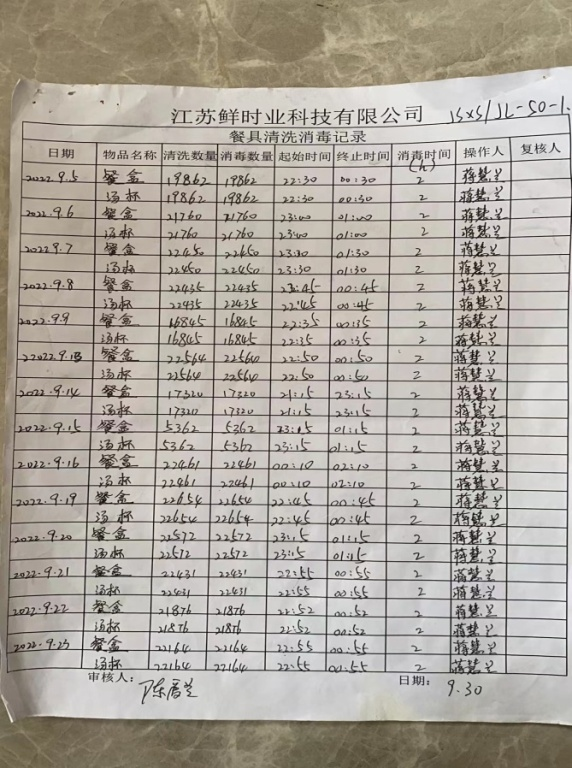 江苏鲜时业科技有限公司 JSXS/JL-SO-1.
餐具清洗消毒记录
日期 物品名称 清洗数量 消毒数量 起始时间 终止时间 消毒时间(h) 操作人 复核人
2022.9.5 餐盒 19862 19862 22:30 00:30 2 蒋慧兰
汤杯 19862 19862 22:30 00:30 2 蒋慧兰
2022.9.6 餐盒 21760 21760 23:00 01:00 2 蒋慧兰
汤杯 21760 21760 23:00 01:00 2 蒋慧兰
2022.9.7 餐盒 22450 22450 23:30 01:30 2 蒋慧兰
汤杯 22450 22450 23:30 01:30 2 蒋慧兰
2022.9.8 餐盒 22435 22435 22:45 00:45 2 蒋慧兰
汤杯 22435 22435 22:45 00:45 2 蒋慧兰
2022.9.9 餐盒 16845 16845 22:35 00:35 2 蒋慧兰
汤杯 16845 16845 22:35 00:35 2 蒋慧兰
22022.9.13 餐盒 22564 22564 22:50 00:50 2 蒋慧兰
汤杯 22564 22564 22:50 00:50 2 蒋慧兰
2022.9.14 餐盒 17320 17320 21:15 23:15 2 蒋慧兰
汤杯 17320 17320 21:15 23:15 2 蒋慧兰
2022.9.15 餐盒 5362 5362 23:15 01:15 2 蒋慧兰
汤杯 5362 5362 23:15 01:15 2 蒋慧兰
2022.9.16 餐盒 22461 22461 00:10 02:10 2 蒋慧兰
汤杯 22461 22461 00:10 02:10 2 蒋慧兰
2022.9.19 餐盒 22654 22654 22:45 00:45 2 蒋慧兰
汤杯 22654 22654 22:45 00:45 2 蒋慧兰
2022.9.20 餐盒 22572 22572 23:15 01:15 2 蒋慧兰
汤杯 22572 22572 23:15 01:15 2 蒋慧兰
2022.9.21 餐盒 22431 22431 22:55 00:55 2 蒋慧兰
汤杯 22431 22431 22:55 00:55 2 蒋慧兰
2022.9.22 餐盒 21876 21876 22:52 00:52 2 蒋慧兰
汤杯 21876 21876 22:52 00:52 2 蒋慧兰
2022.9.23 餐盒 22164 22164 22:55 00:55 2 蒋慧兰
汤杯 22164 22164 22:55 00:55 2 蒋慧兰
审核人: 陈香兰 日期: 9.30